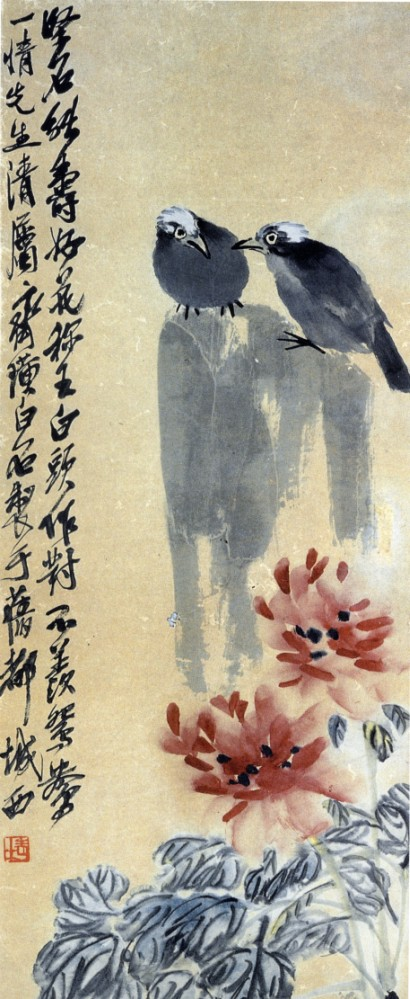 堅石能壽好花稱王白頭作對不羨鴛鴦
一情先生清屬齊璜白石製于舊都城西